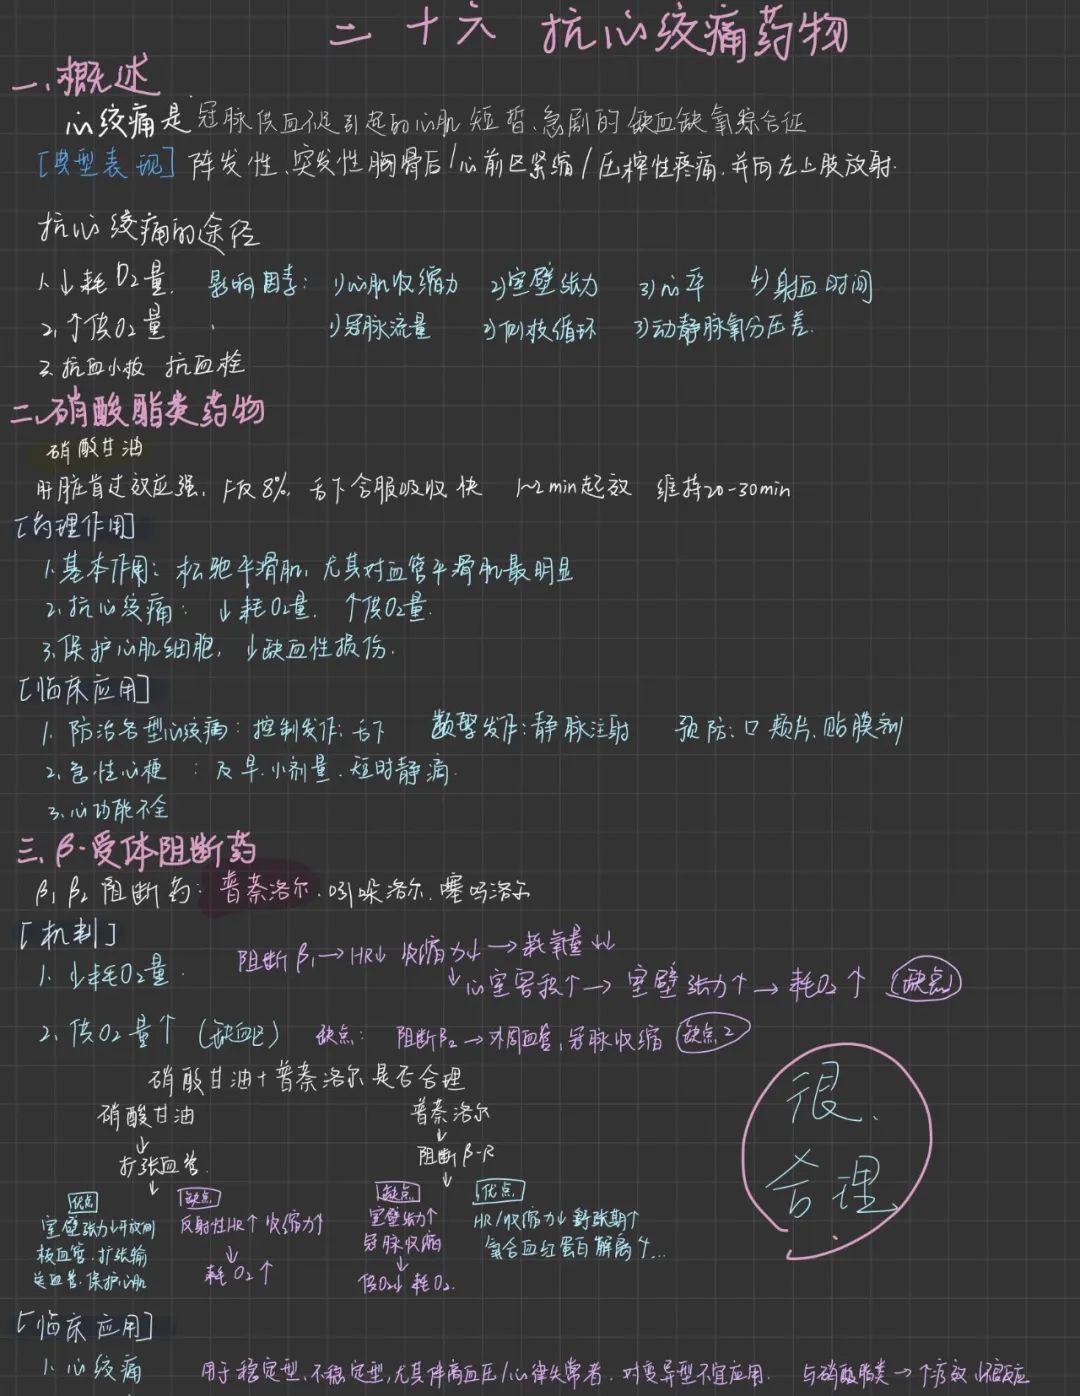 二十六 抗心绞痛药物
一、概述
心绞痛是冠脉供血不足引起的心肌短暂、急剧的缺血缺氧综合征
[典型表现] 阵发性、突发性胸骨后/心前区紧缩/压榨性疼痛,并向左上肢放射.
抗心绞痛的途径
1.↓耗O₂量. 影响因素: 1)心肌收缩力 2)室壁张力 3)心率 4)射血时间
2.↑供O₂量 1)冠脉流量 2)侧枝循环 3)动静脉氧分压差.
3.抗血小板 抗血栓
二、硝酸酯类药物
硝酸甘油
肝脏首过效应强, F仅8%, 舌下含服吸收快 1~2min起效 维持20-30min
[药理作用]
1.基本作用: 松弛平滑肌, 尤其对血管平滑肌最明显
2.抗心绞痛: ↓耗O₂量. ↑供O₂量.
3.保护心肌细胞, ↓缺血性损伤.
[临床应用]
1.防治各型心绞痛: 控制发作:舌下 频繁发作:静脉注射 预防:口颊片.贴膜剂
2.急性心梗: 及早.小剂量.短时静滴.
3.心功能不全
三、β-受体阻断药
β₁β₂阻断药: 普萘洛尔.吲哚洛尔.噻吗洛尔
[机制]
1.↓耗O₂量. 阻断β₁→HR↓ 收缩力↓→耗氧量↓↓
↳心室容积↑→室壁张力↑→耗O₂↑ (缺点)
2.供O₂量↑ (缺血区) 缺点: 阻断β₂→外周血管、冠脉收缩 (缺点2)
硝酸甘油+普萘洛尔是否合理
硝酸甘油 普萘洛尔
↓ ↓
扩张血管. 阻断β-R
↓ ↓
优点 缺点 缺点 优点
室壁张力↓开放侧 反射性HR↑ 收缩力↑ 室壁张力↑ HR/收缩力↓ 舒张期↑
枝血管.扩张输 ↓ 冠脉收缩 氧合血红蛋白解离↑...
送血管.保护心肌 耗O₂↑ 供O₂↓ 耗O₂.
很
合理
[临床应用]
1.心绞痛 用于稳定型、不稳定型,尤其伴高血压/心律失常者. 对变异型不宜应用. 与硝酸酯类→↑疗效 ↓不良反应